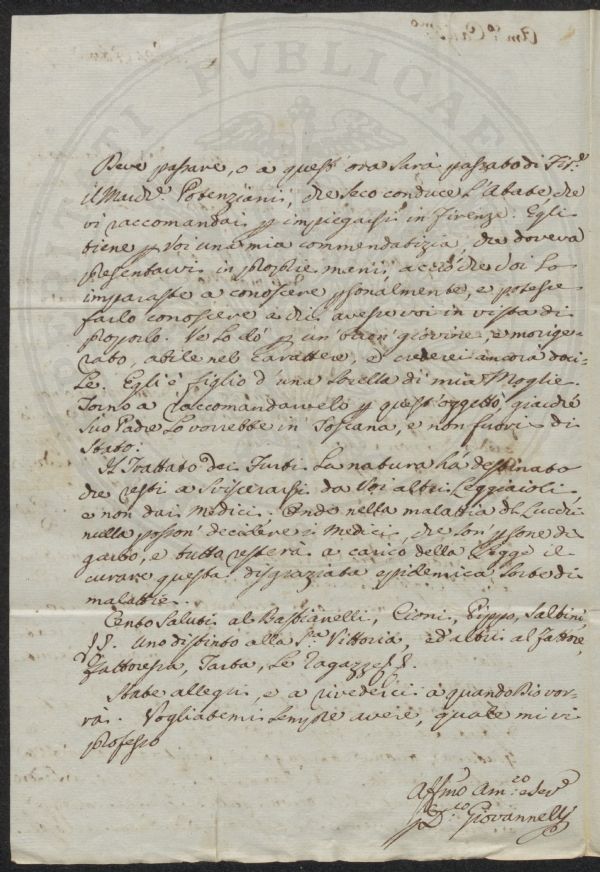 Deve passare, o a quest'ora sarà passato di Fir.e
il March.e Potenziani, che seco conduce l'Abate che
vi raccomandai p impiegarsi in Firenze. Egli
tiene p voi una mia commendatizia, che doveva
presentarvi in proprie mani, acciò che voi lo
imparaste a conoscere psonalmente, e poteste
farlo conoscere a chi aveste voi in vista di
proporlo. Ve lo dò p un buon giovine, e morige-
rato, abile nel Carattere, e crederei ancora doci-
le. Egli è figlio d'una Sorella di mia Moglie.
Torno a raccomandarvelo p quest'oggetto, giacché
suo Padre lo vorrebbe in Toscana, e non fuori di
Stato.
Il Trattato dei Furti la natura hà destinato
che resti a sviscerarsi da voi altri Leggiaioli,
e non dai Medici. Onde nella malattia di
nulla posson decidere i Medici, che son psone di
garbo, e tutta resterà a carico della Legge il
curare questa disgraziata epidemica sorte di
malattie.
Cento saluti al Bastianelli, Cioni, Pippo, Salbini
Uno distinto alla Sra Vittoria, ed altri al fattore,
fattoressa, Tarba, le ragazze
State allegri, e a rivederci a quando Dio vor-
rà. Vogliatemi sempre avere, quale mi vi
professo
Affmo Am.co e Ser.e
D.co Giovannelli
PVBLICAE